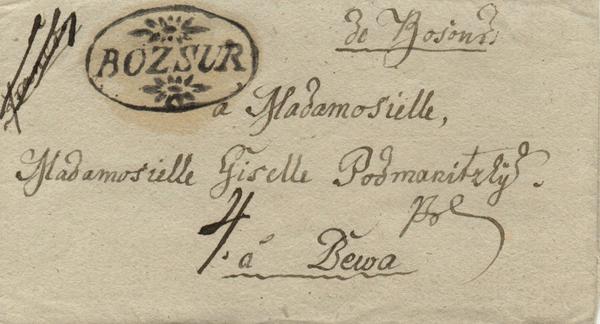 BOZSUR
de Bosour
a Madamosielle,
Madamosielle Giselle Podmanitzkÿ.
4.
a' Dewa